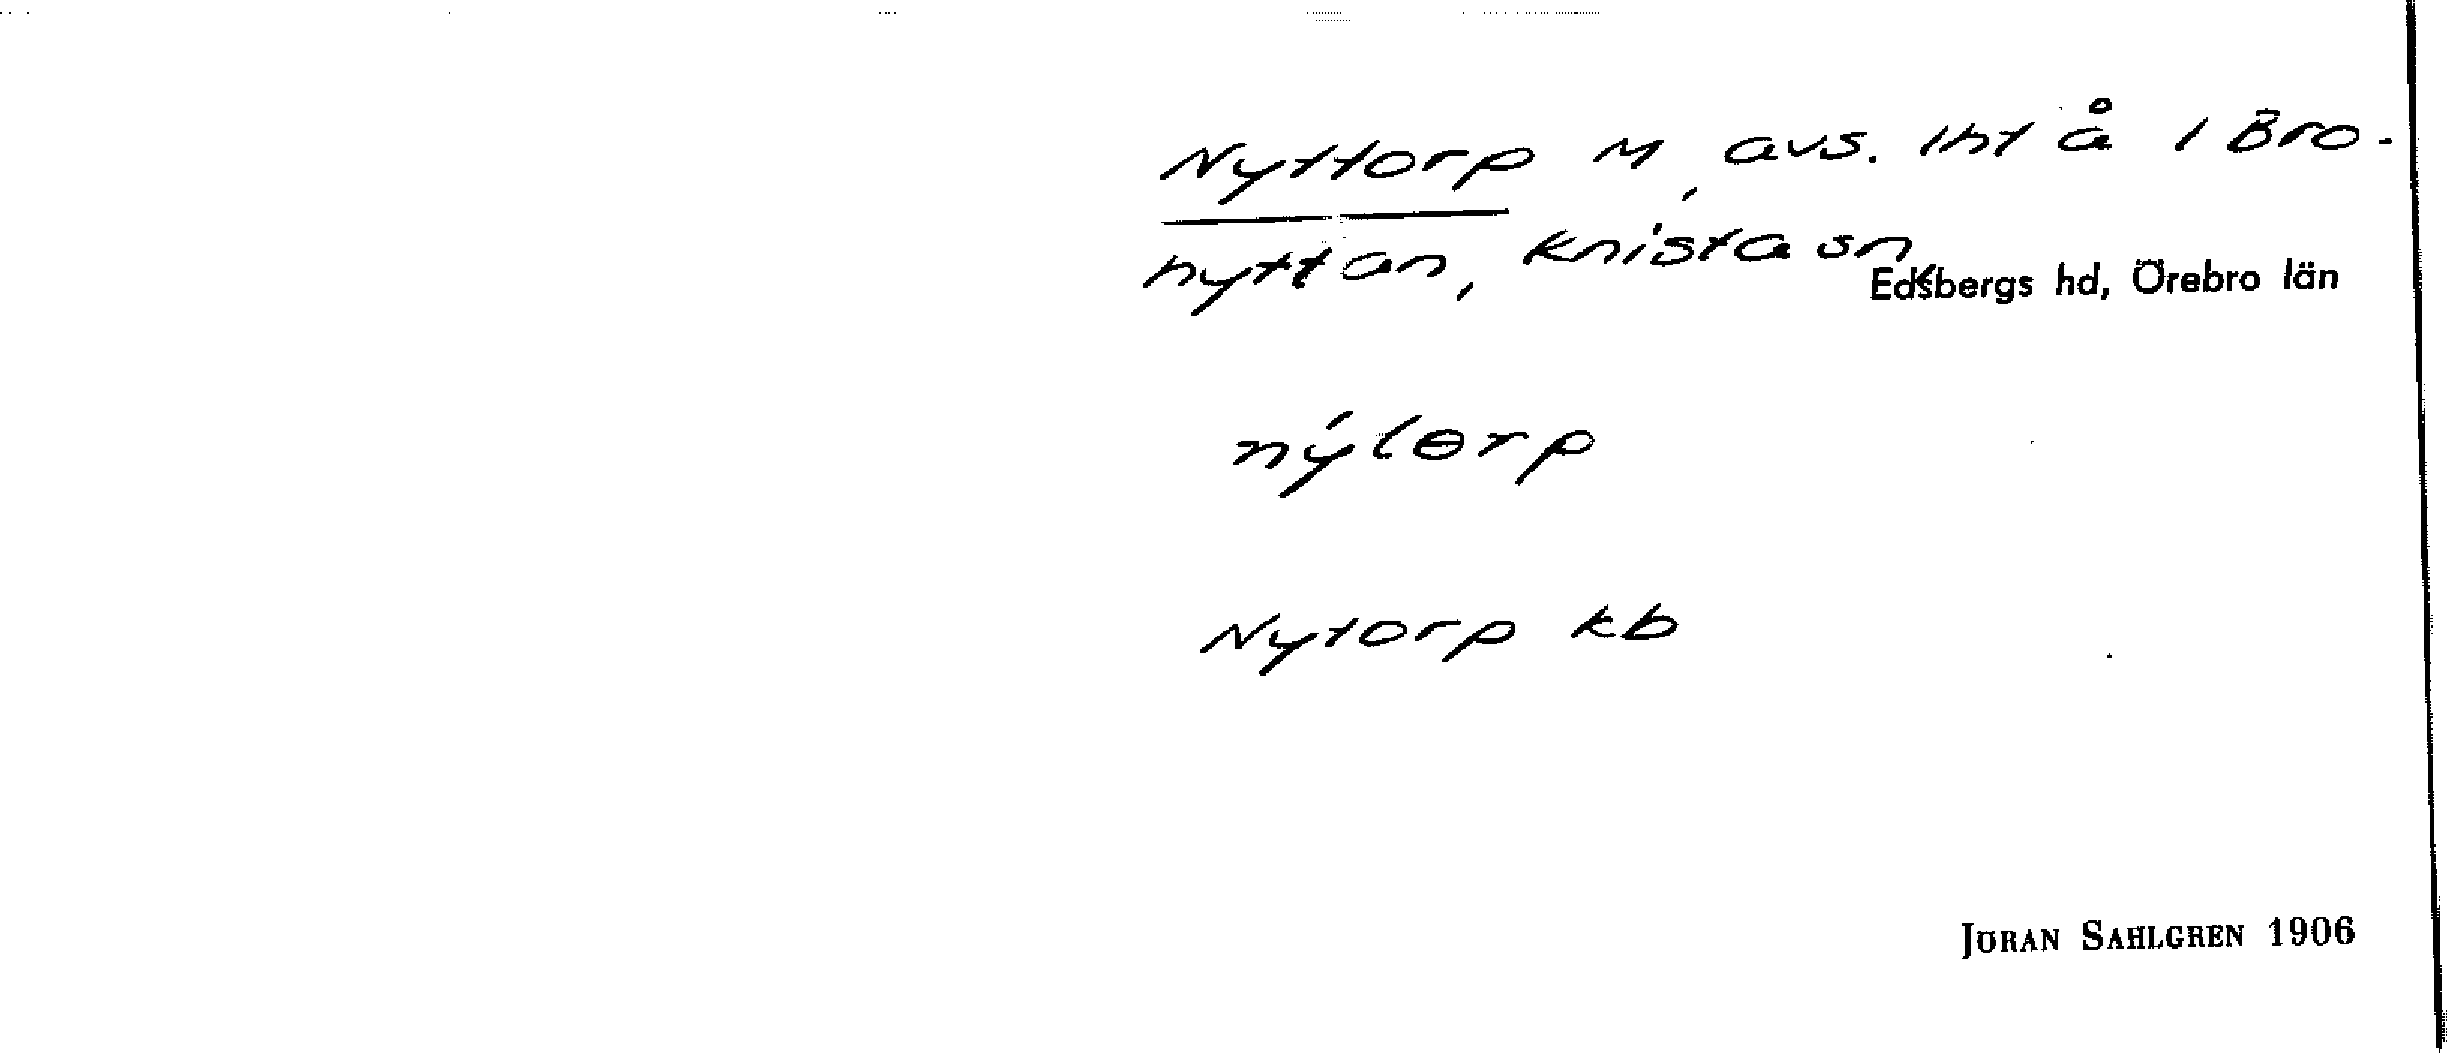 Nyttorp M, avs. lht å i Bro-
hyttan, Knista sn,
Edsbergs hd, Örebro län
nýtɵrp
Nytorp kb
JÖRAN SAHLGREN 1906